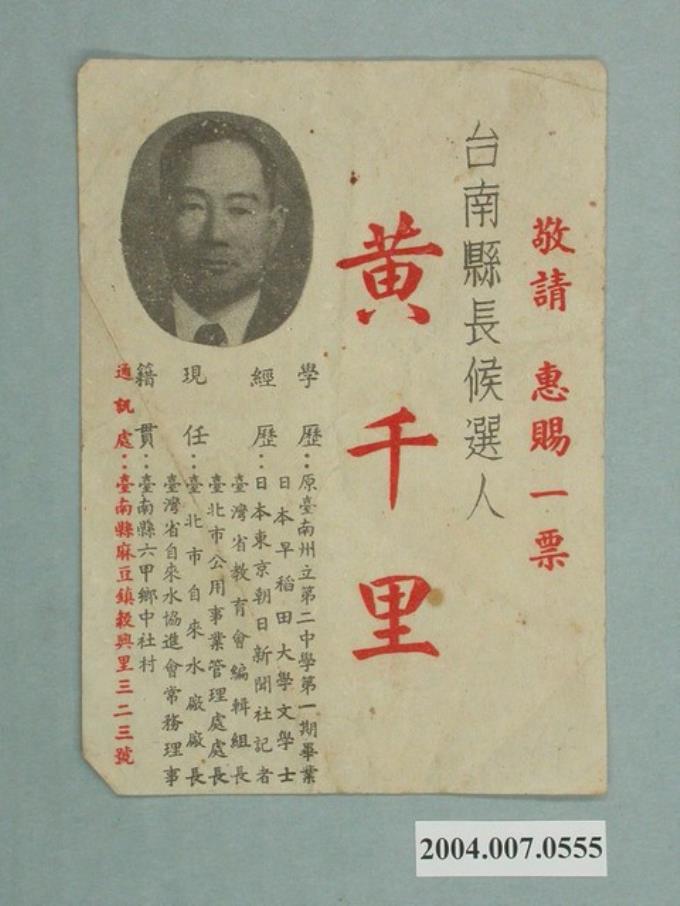 敬請 惠賜一票
台南縣長候選人
黃千里
學歷：原臺南州立第二中學第一期畢業
日本早稻田大學文學士
經歷：日本東京朝日新聞社記者
臺灣省教育會編輯組長
臺北市公用事業管理處處長
現任：臺北市自來水廠廠長
臺灣省自來水協進會常務理事
籍貫：臺南縣六甲鄉中社村
通訊處：臺南縣麻豆鎮穀興里三二三號
2004.007.0555